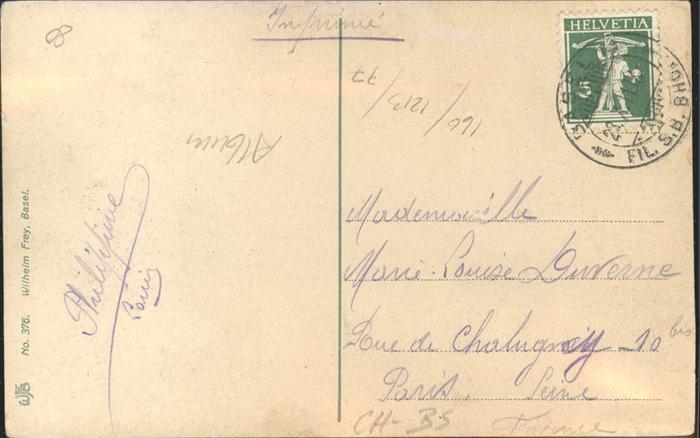 Imprimé
HELVETIA
5
BASEL
FIL. S.B.BHOF
166 / 1213 / 77
Album
Philippine
Mademoiselle
Marie-Louise Duverne
Rue de Chaligny 10 bis
Paris. Seine
France
CH-BS
No. 376. Wilhelm Frey, Basel.